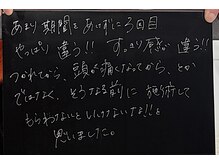 あまり期間をあいずに3回目
やっぱり違う!! すっきり感が違う!!
つかれてから、頭が痛くなってから、とか
ではなく、そうなる前に施術して
もらわないといけないな!!と
思いました。